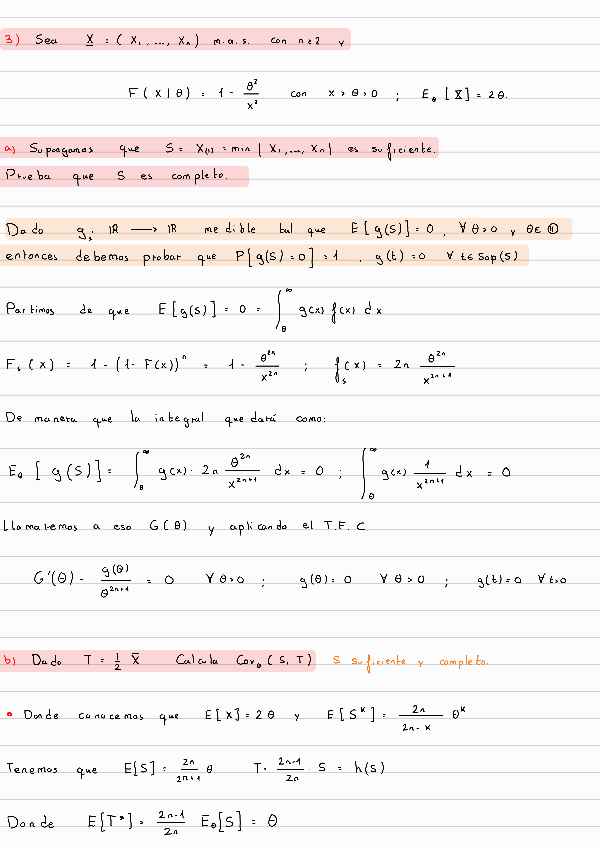 3) Sea X = (X₁, ..., Xₙ) m.a.s. con n≥2 y
F(x|θ) = 1 - θ²/x² con x > θ > 0 ; E_θ[X] = 2θ.
a) Supongamos que S = X₍₁₎ = min{X₁, ..., Xₙ} es suficiente.
Prueba que S es completo.
Dado g: ℝ ⟶ ℝ medible tal que E[g(S)] = 0, ∀θ>0 y θ∈Θ
entonces debemos probar que P[g(S)=0] = 1, g(t)=0 ∀ t∈Sop(S)
Partimos de que E[g(S)] = 0 = ∫_θ^∞ g(x) f(x) dx
F_s(x) = 1 - (1 - F(x))ⁿ = 1 - θ²ⁿ/x²ⁿ ; f_s(x) = 2n θ²ⁿ/x²ⁿ⁺¹
De manera que la integral quedará como:
E_θ[g(S)] = ∫_θ^∞ g(x) · 2n θ²ⁿ/x²ⁿ⁺¹ dx = 0 ; ∫_θ^∞ g(x) 1/x²ⁿ⁺¹ dx = 0
Llamaremos a eso G(θ) y aplicando el T.F.C.
G'(θ) - g(θ)/θ²ⁿ⁺¹ = 0 ∀θ>0 ; g(θ) = 0 ∀θ>0 ; g(t)=0 ∀t>0
b) Dado T = ½ X̄ Calcula Cov_θ(S,T) S suficiente y completo.
• Donde conocemos que E[X] = 2θ y E[Sᵏ] = 2n/(2n-k) θᵏ
Tenemos que E[S] = 2n/(2n+1) θ T* (2n-1)/2n · S = h(S)
Donde E[T*] = (2n-1)/2n E_θ[S] = θ